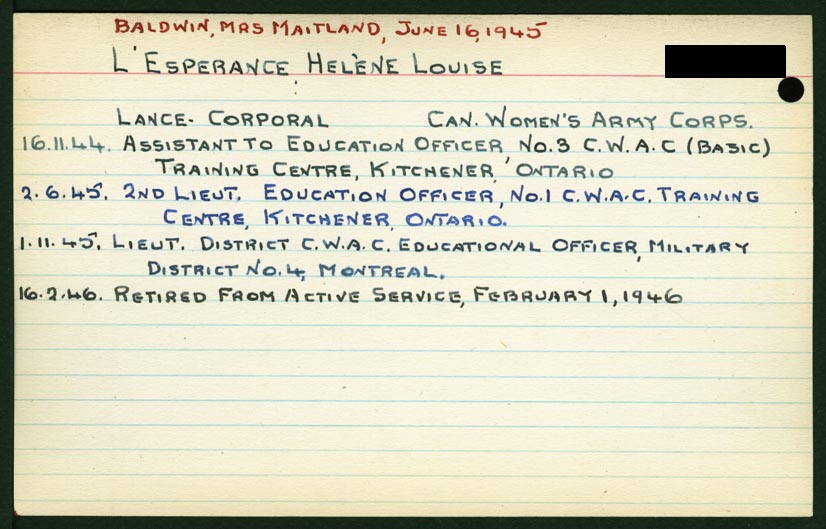 BALDWIN, MRS MAITLAND, JUNE 16, 1945
L'ESPERANCE HELÈNE LOUISE
LANCE-CORPORAL CAN. WOMEN'S ARMY CORPS.
16.11.44. ASSISTANT TO EDUCATION OFFICER NO.3 C.W.A.C (BASIC)
TRAINING CENTRE, KITCHENER, ONTARIO
2.6.45. 2ND LIEUT. EDUCATION OFFICER, NO.1 C.W.A.C. TRAINING
CENTRE, KITCHENER, ONTARIO.
1.11.45. LIEUT. DISTRICT C.W.A.C. EDUCATIONAL OFFICER, MILITARY
DISTRICT NO.4, MONTREAL.
16.2.46. RETIRED FROM ACTIVE SERVICE, FEBRUARY 1, 1946